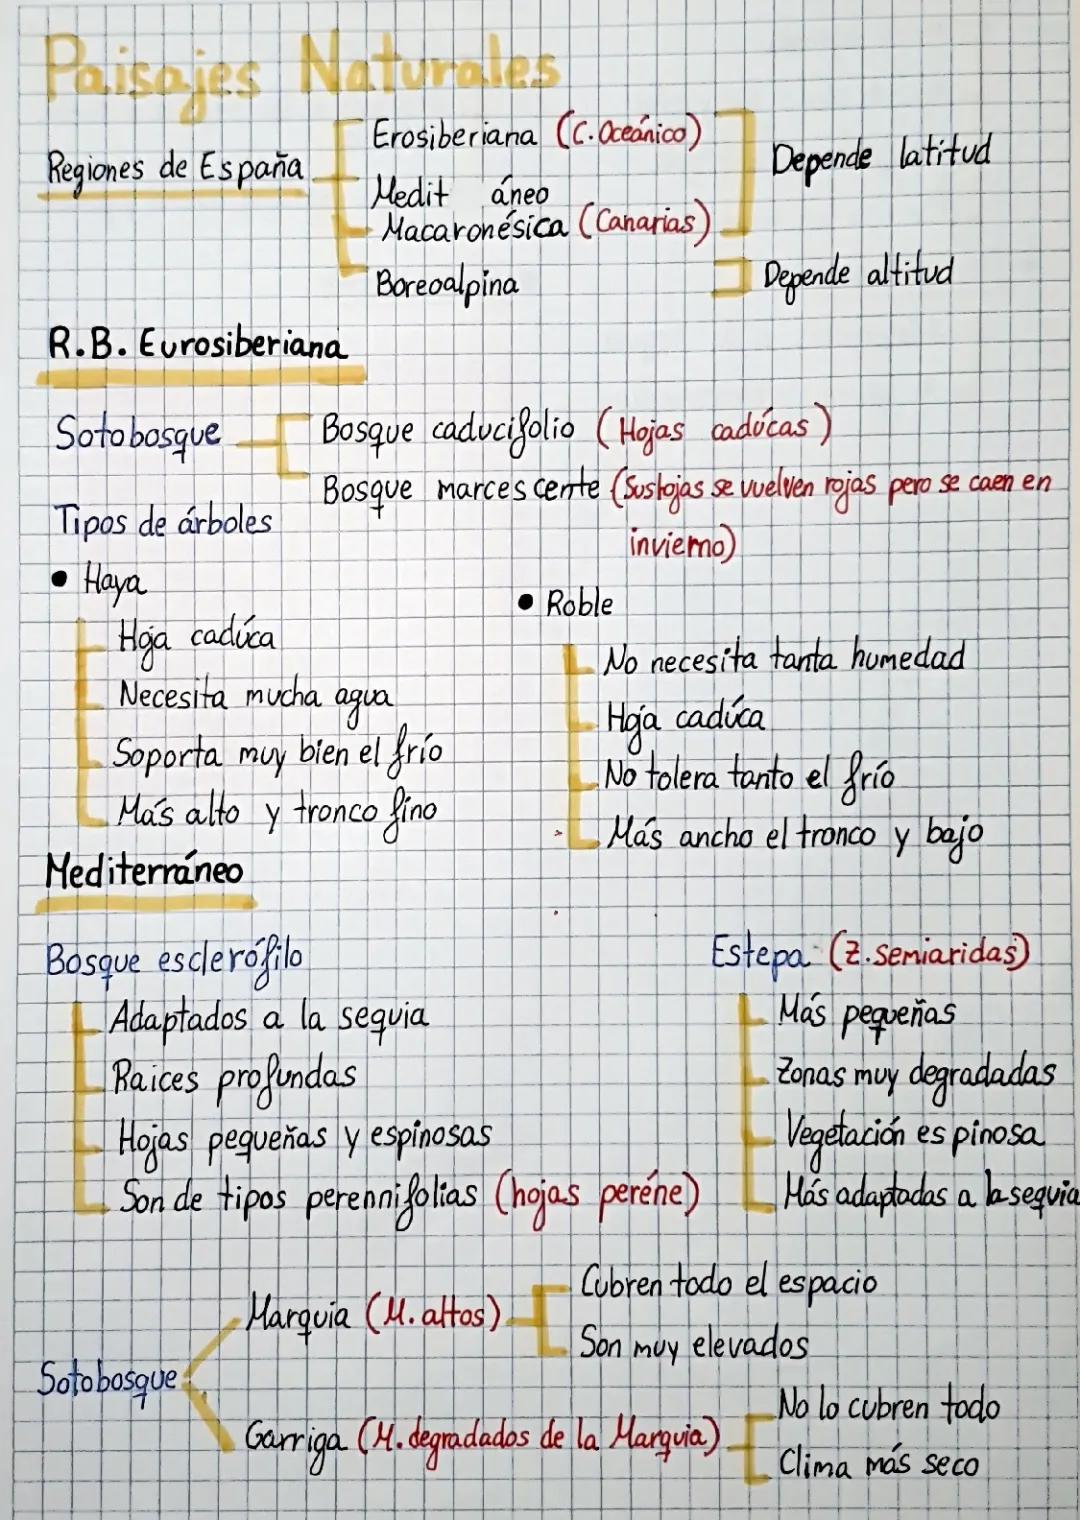 Paisajes Naturales
Regiones de España
Erosiberiana (C. Oceánico)
Medit áneo
Macaronésica (Canarias)
Depende latitud
Boreoalpina
Depende altitud
R.B. Eurosiberiana
Sotobosque
Bosque caducifolio (Hojas cadúcas)
Bosque marcescente (Sus hojas se vuelven rojas pero se caen en
invierno)
Tipos de árboles
• Haya
Hoja cadúca
Necesita mucha agua
Soporta muy bien el frío
Más alto y tronco fino
• Roble
No necesita tanta humedad
Hoja cadúca
No tolera tanto el frío
Más ancho el tronco y bajo
Mediterráneo
Bosque esclerófilo
Adaptados a la sequia
Raices profundas
Hojas pequeñas y espinosas
Son de tipos perennifolias (hojas peréne)
Estepa (Z. semiaridas)
Más pequeñas
Zonas muy degradadas
Vegetación espinosa
Más adaptadas a la sequia
Sotobosque
Marquia (M. altos)
Cubren todo el espacio
Son muy elevados
Garriga (M. degradados de la Marquia)
No lo cubren todo
Clima más seco